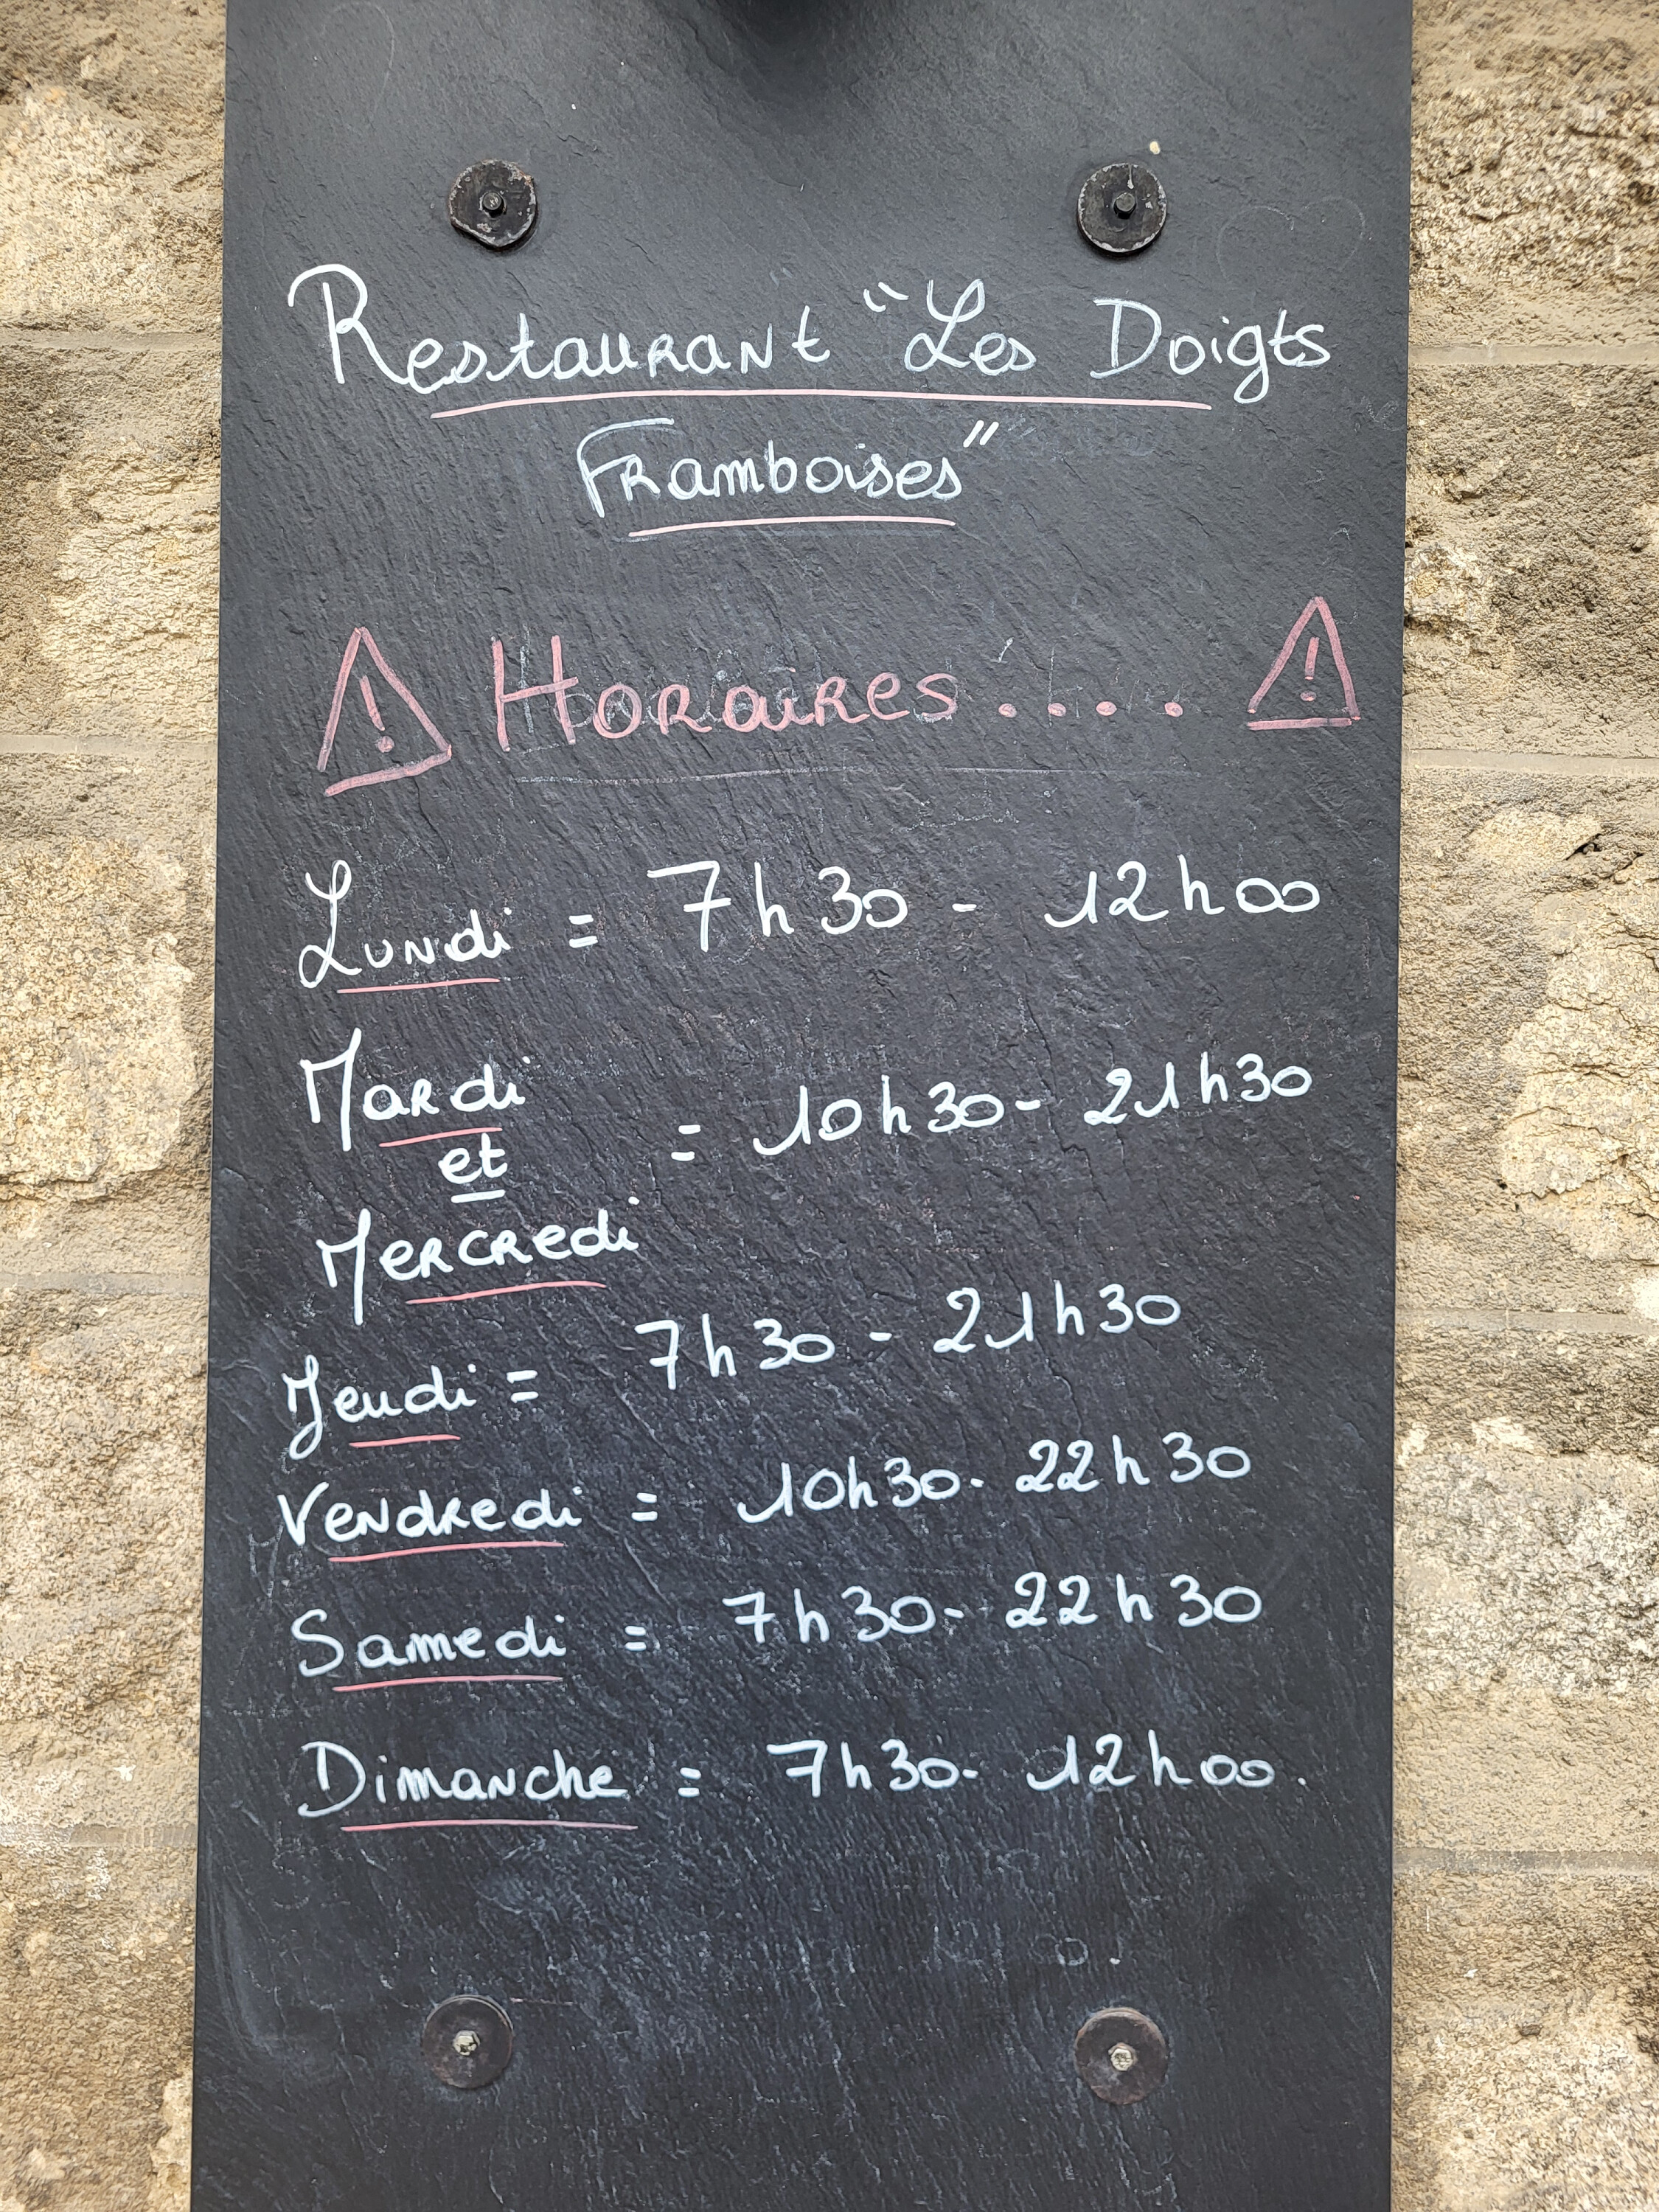 Restaurant "Les Doigts
Framboises"
Horaires....
Lundi = 7h30 - 12h00
Mardi
et
= 10h30 - 21h30
Mercredi
Jeudi = 7h30 - 21h30
Vendredi = 10h30 - 22h30
Samedi = 7h30 - 22h30
Dimanche = 7h30 - 12h00.